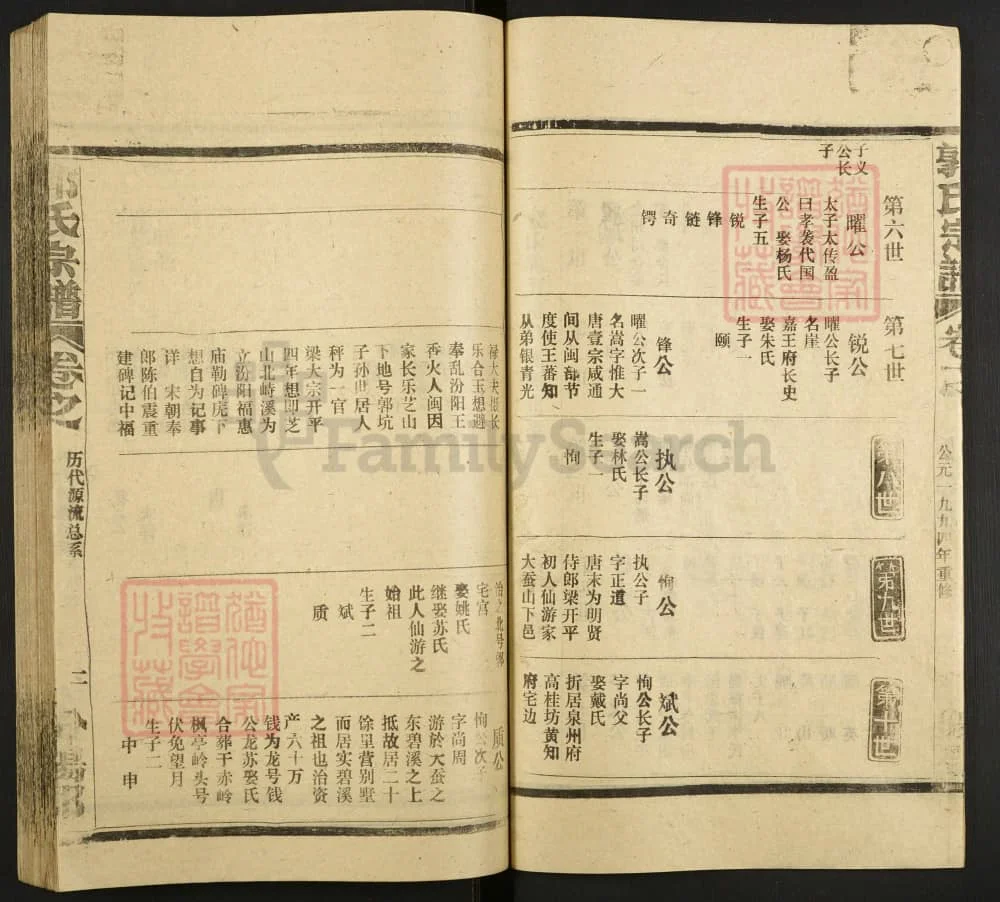 子义
公长
子
第六世
曜公
太子太传盈
曰孝袭代国
公 娶杨氏
生子五
锐
锋
链
奇
锷
第七世
锐公
曜公长子
名崖
嘉王府长史
娶朱氏
生子一
颐
锋公
曜公次子一
名嵩字惟大
唐壹宗咸通
间从闽部节
度使王蕃知
从弟银青光
第八世
执公
嵩公长子
娶林氏
生子一
恂
第九世
恂公
执公子
字正道
唐末为明贤
侍郎梁开平
初人仙游家
大蚕山下邑
第十世
斌公
恂公长子
字尚父
娶戴氏
折居泉州府
高桂坊黄知
府宅边
公元一九九四年重修
郭氏宗谱
禄大夫振长
乐合玉想避
奉乱汾阳王
香火人闽因
家长乐芝山
下地号郭坑
子孙世居人
秤为一官
梁大宗开平
四年想即芝
山北峙溪为
立汾阳福惠
庙勒碑庑下
想自为记事
详 宋朝奉
郎陈伯震重
建碑记中福
宅宫
娶姚氏
继娶苏氏
此人仙游之
始祖
生子二
斌
质
质公
恂公次子
字尚周
游於大蚕之
东碧溪之上
抵故居二十
馀里营别墅
而居实碧溪
之祖也治资
产六十万
钱为龙号钱
公龙苏娶氏
合葬干赤岭
枫亭岭头号
伏免望月
生子二
中 申
氏宗谱
卷之
历代源流总系
二
FamilySearch